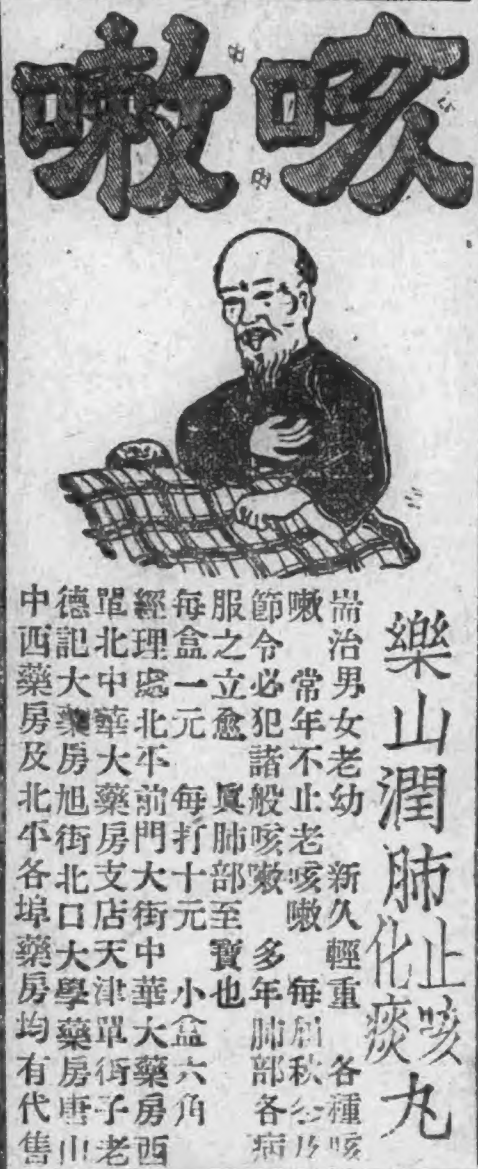 咳嗽
樂山潤肺止咳化痰丸
耑治男女老幼　新久輕重　各種咳
嗽　常年不止老咳嗽　每屆秋冬及
節令必犯諸般咳嗽　多年肺部各病
服之立愈　眞肺部至寶也
每盒一元　每打十元　小盒六角
經理處北平前門大街中華大藥房西
單北中華大藥房支店天津單街子老
德記大藥房旭街北口大學藥房唐山
中西藥房及北平各埠藥房均有代售